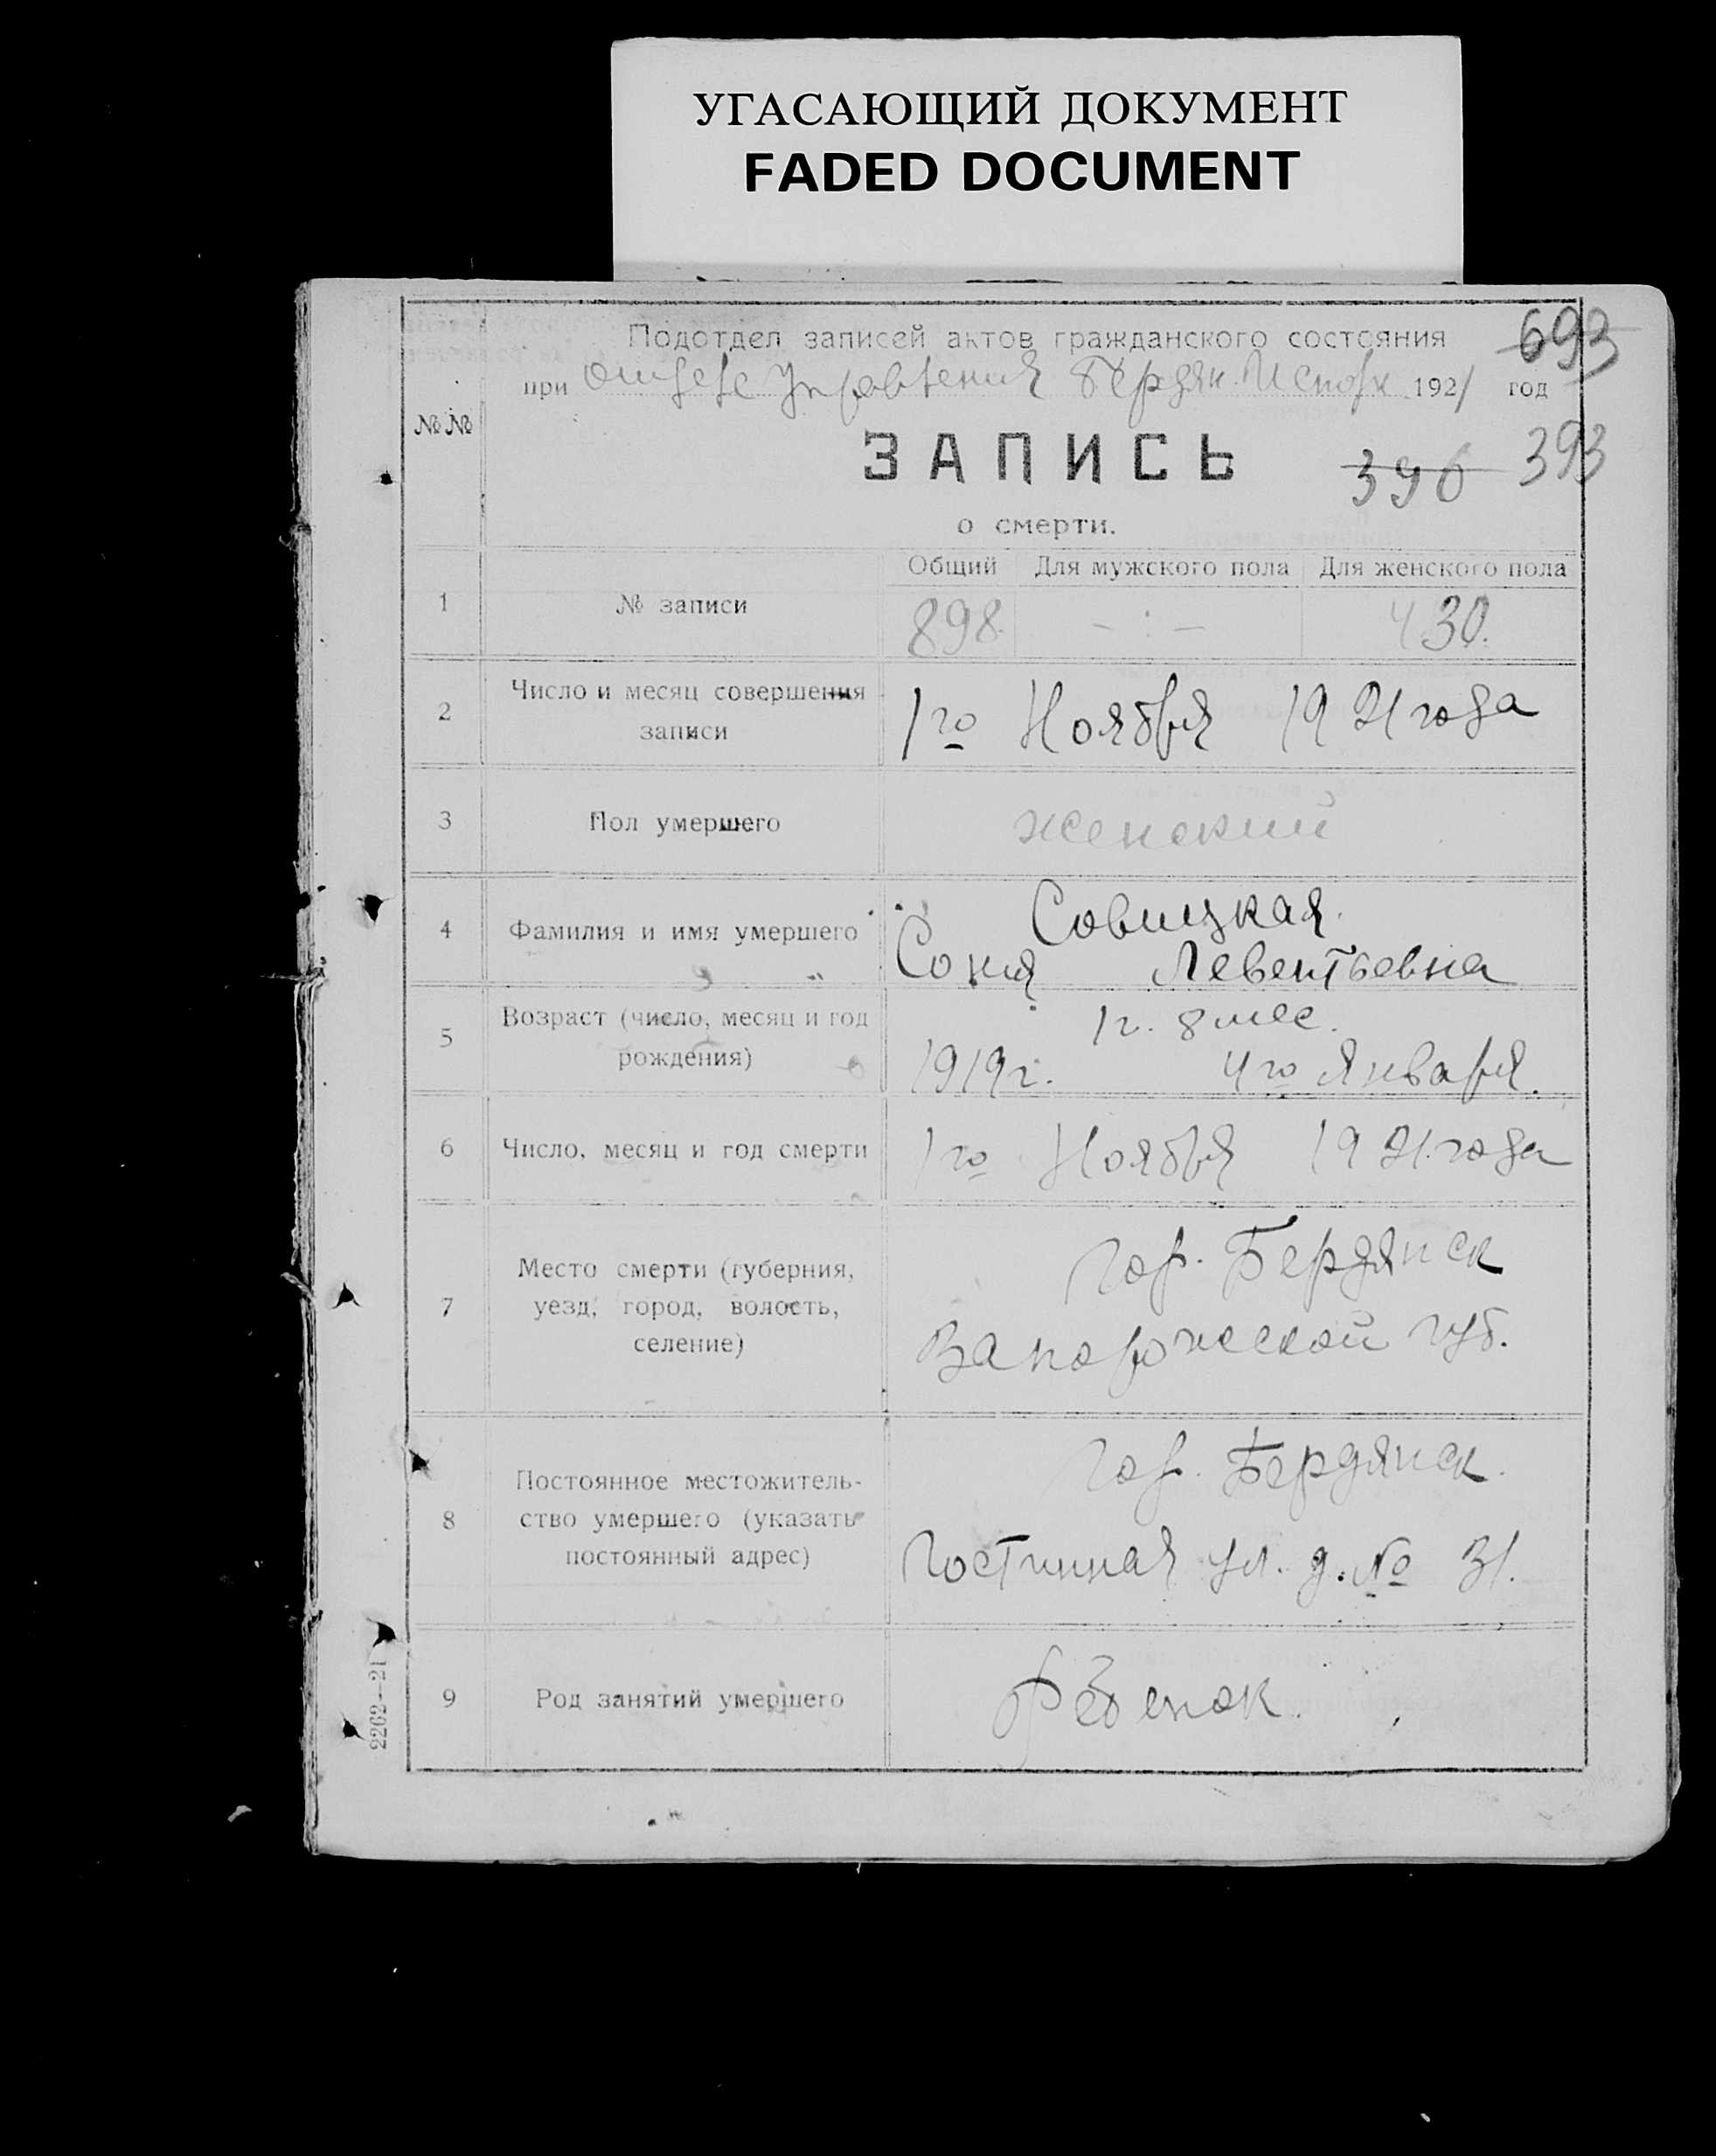 УГАСАЮЩИЙ ДОКУМЕНТ
FADED DOCUMENT
693
Подотдел записей актов гражданского состояния
при отделе Управления Бердян. Исполк 1921 год
№№
ЗАПИСЬ
396 393
о смерти.
Общий Для мужского пола Для женского пола
1 № записи 898. – : – 430.
2 Число и месяц совершения
записи
1го Ноября 1921 года
3 Пол умершего женский
4 Фамилия и имя умершего
Совицкая.
Соня Левентьевна
5 Возраст (число, месяц и год
рождения)
1 г. 8 мес.
1919 г. 4го Января.
6 Число, месяц и год смерти 1го Ноября 1921 года
7 Место смерти (губерния,
уезд, город, волость,
селение)
Гор. Бердянск
Запорожской губ.
8 Постоянное местожитель-
ство умершего (указать
постоянный адрес)
Гор. Бердянск.
Гостинная ул. д. № 31.
9 Род занятий умершего Ребенок.
2262–21